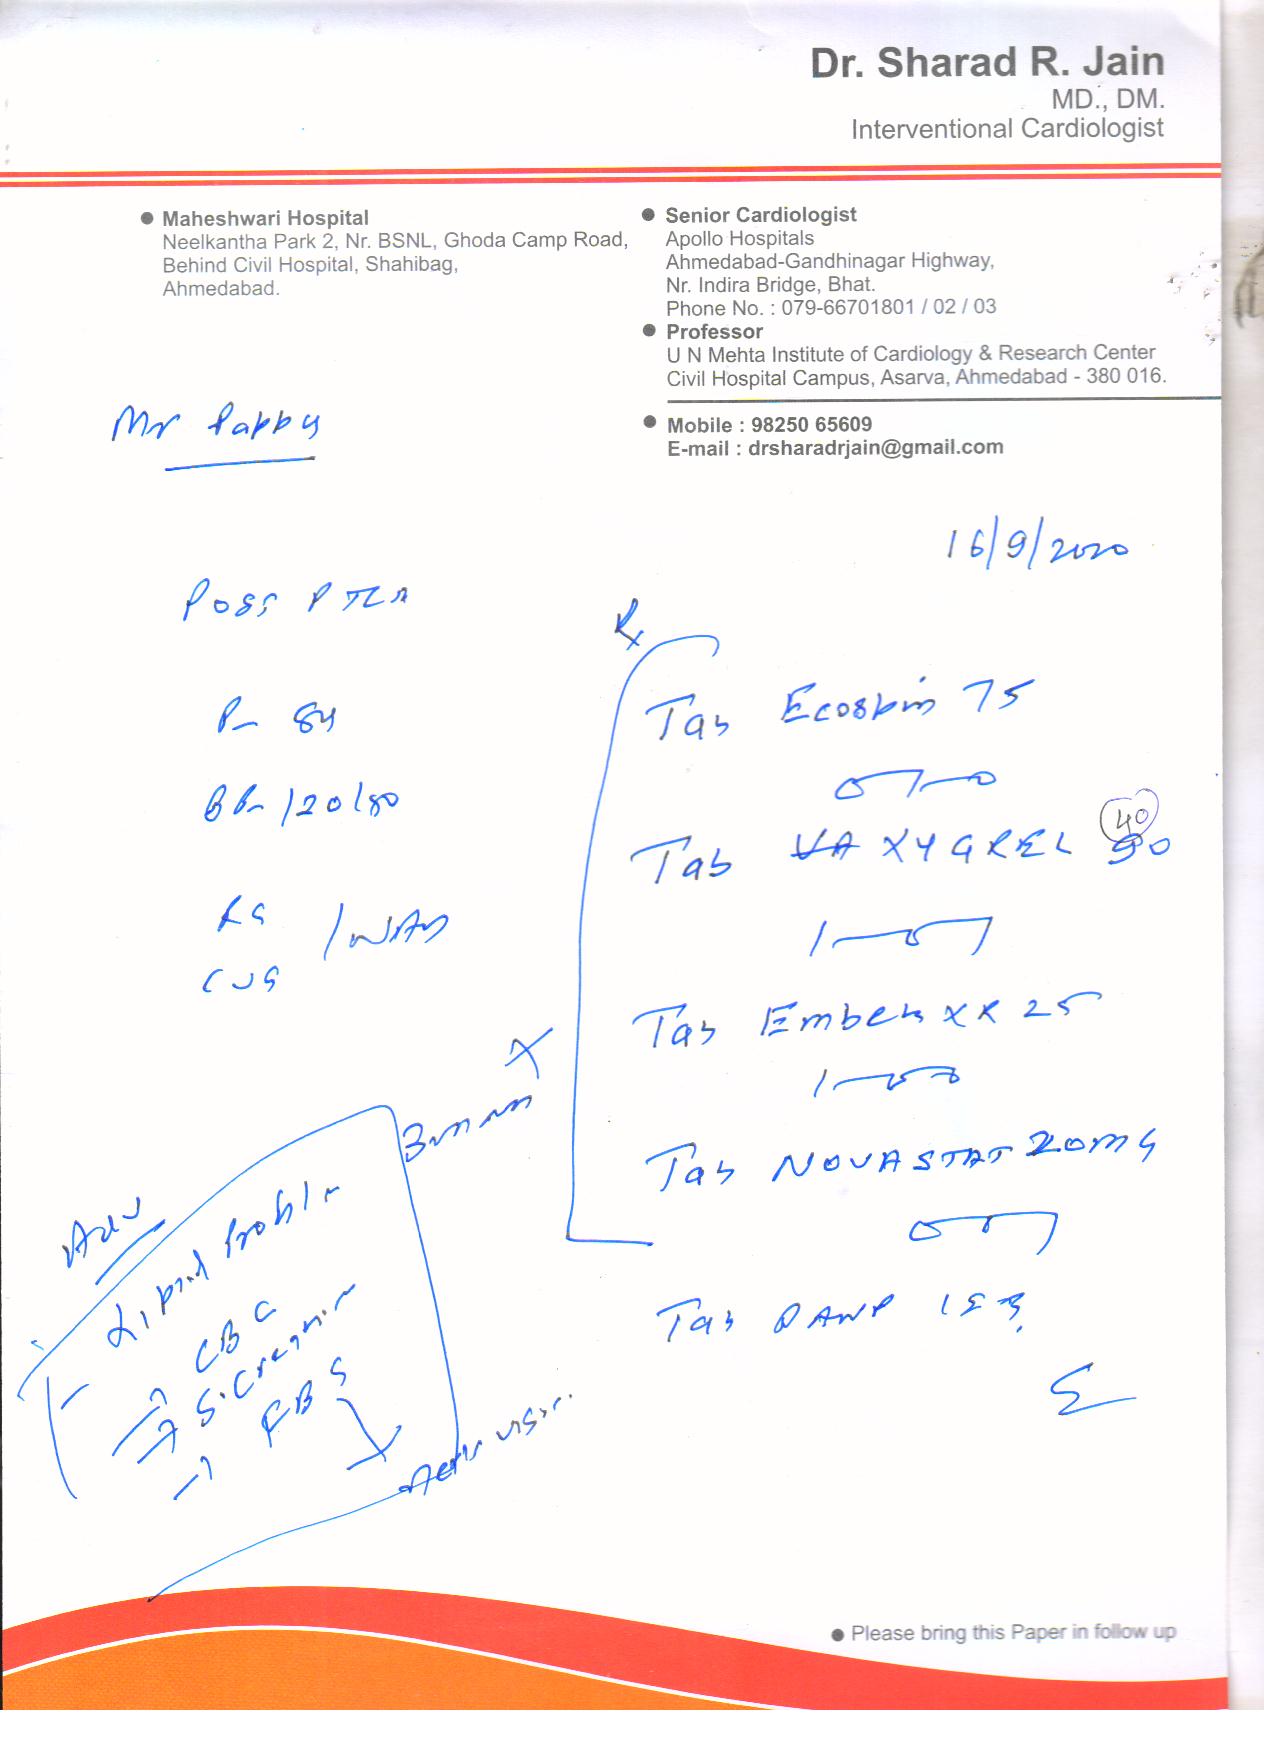 Dr. Sharad R. Jain
MD., DM.
Interventional Cardiologist
● Maheshwari Hospital
Neelkantha Park 2, Nr. BSNL, Ghoda Camp Road,
Behind Civil Hospital, Shahibag,
Ahmedabad.
● Senior Cardiologist
Apollo Hospitals
Ahmedabad-Gandhinagar Highway,
Nr. Indira Bridge, Bhat.
Phone No. : 079-66701801 / 02 / 03
● Professor
U N Mehta Institute of Cardiology & Research Center
Civil Hospital Campus, Asarva, Ahmedabad - 380 016.
● Mobile : 98250 65609
E-mail : drsharadrjain@gmail.com
Mr Pappy
16/9/2020
Post PTCA
P- 84
BP- 120/80
RS
CVS
/NAD
Rx
Tab Ecosprin 75
0-1-0
40
Tab AXYGREL 90
1-0-1
Tab Embeta XR 25
1-0-0
Tab NOVASTAT 20mg
0-0-1
Tab
3
X
Adv
Lipid Profile
→ CBC
→ S. Creatinine
→ FBS
visit
● Please bring this Paper in follow up